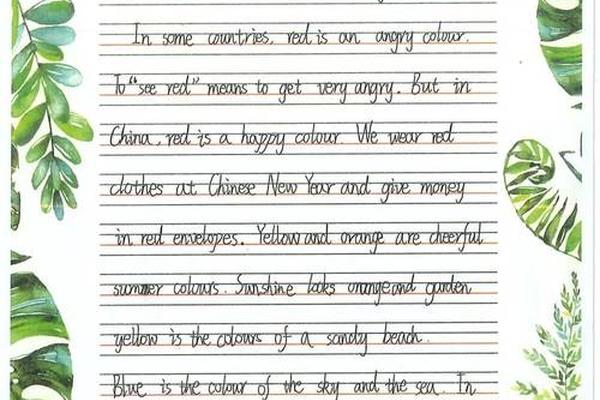 In some countries, red is an angry colour.
To "see red" means to get very angry. But in
China, red is a happy colour. We wear red
clothes at Chinese New Year and give money
in red envelopes. Yellow and orange are cheerful
summer colours. Sunshine looks orange and garden
yellow is the colours of a sandy beach.
Blue is the colour of the sky and the sea. In